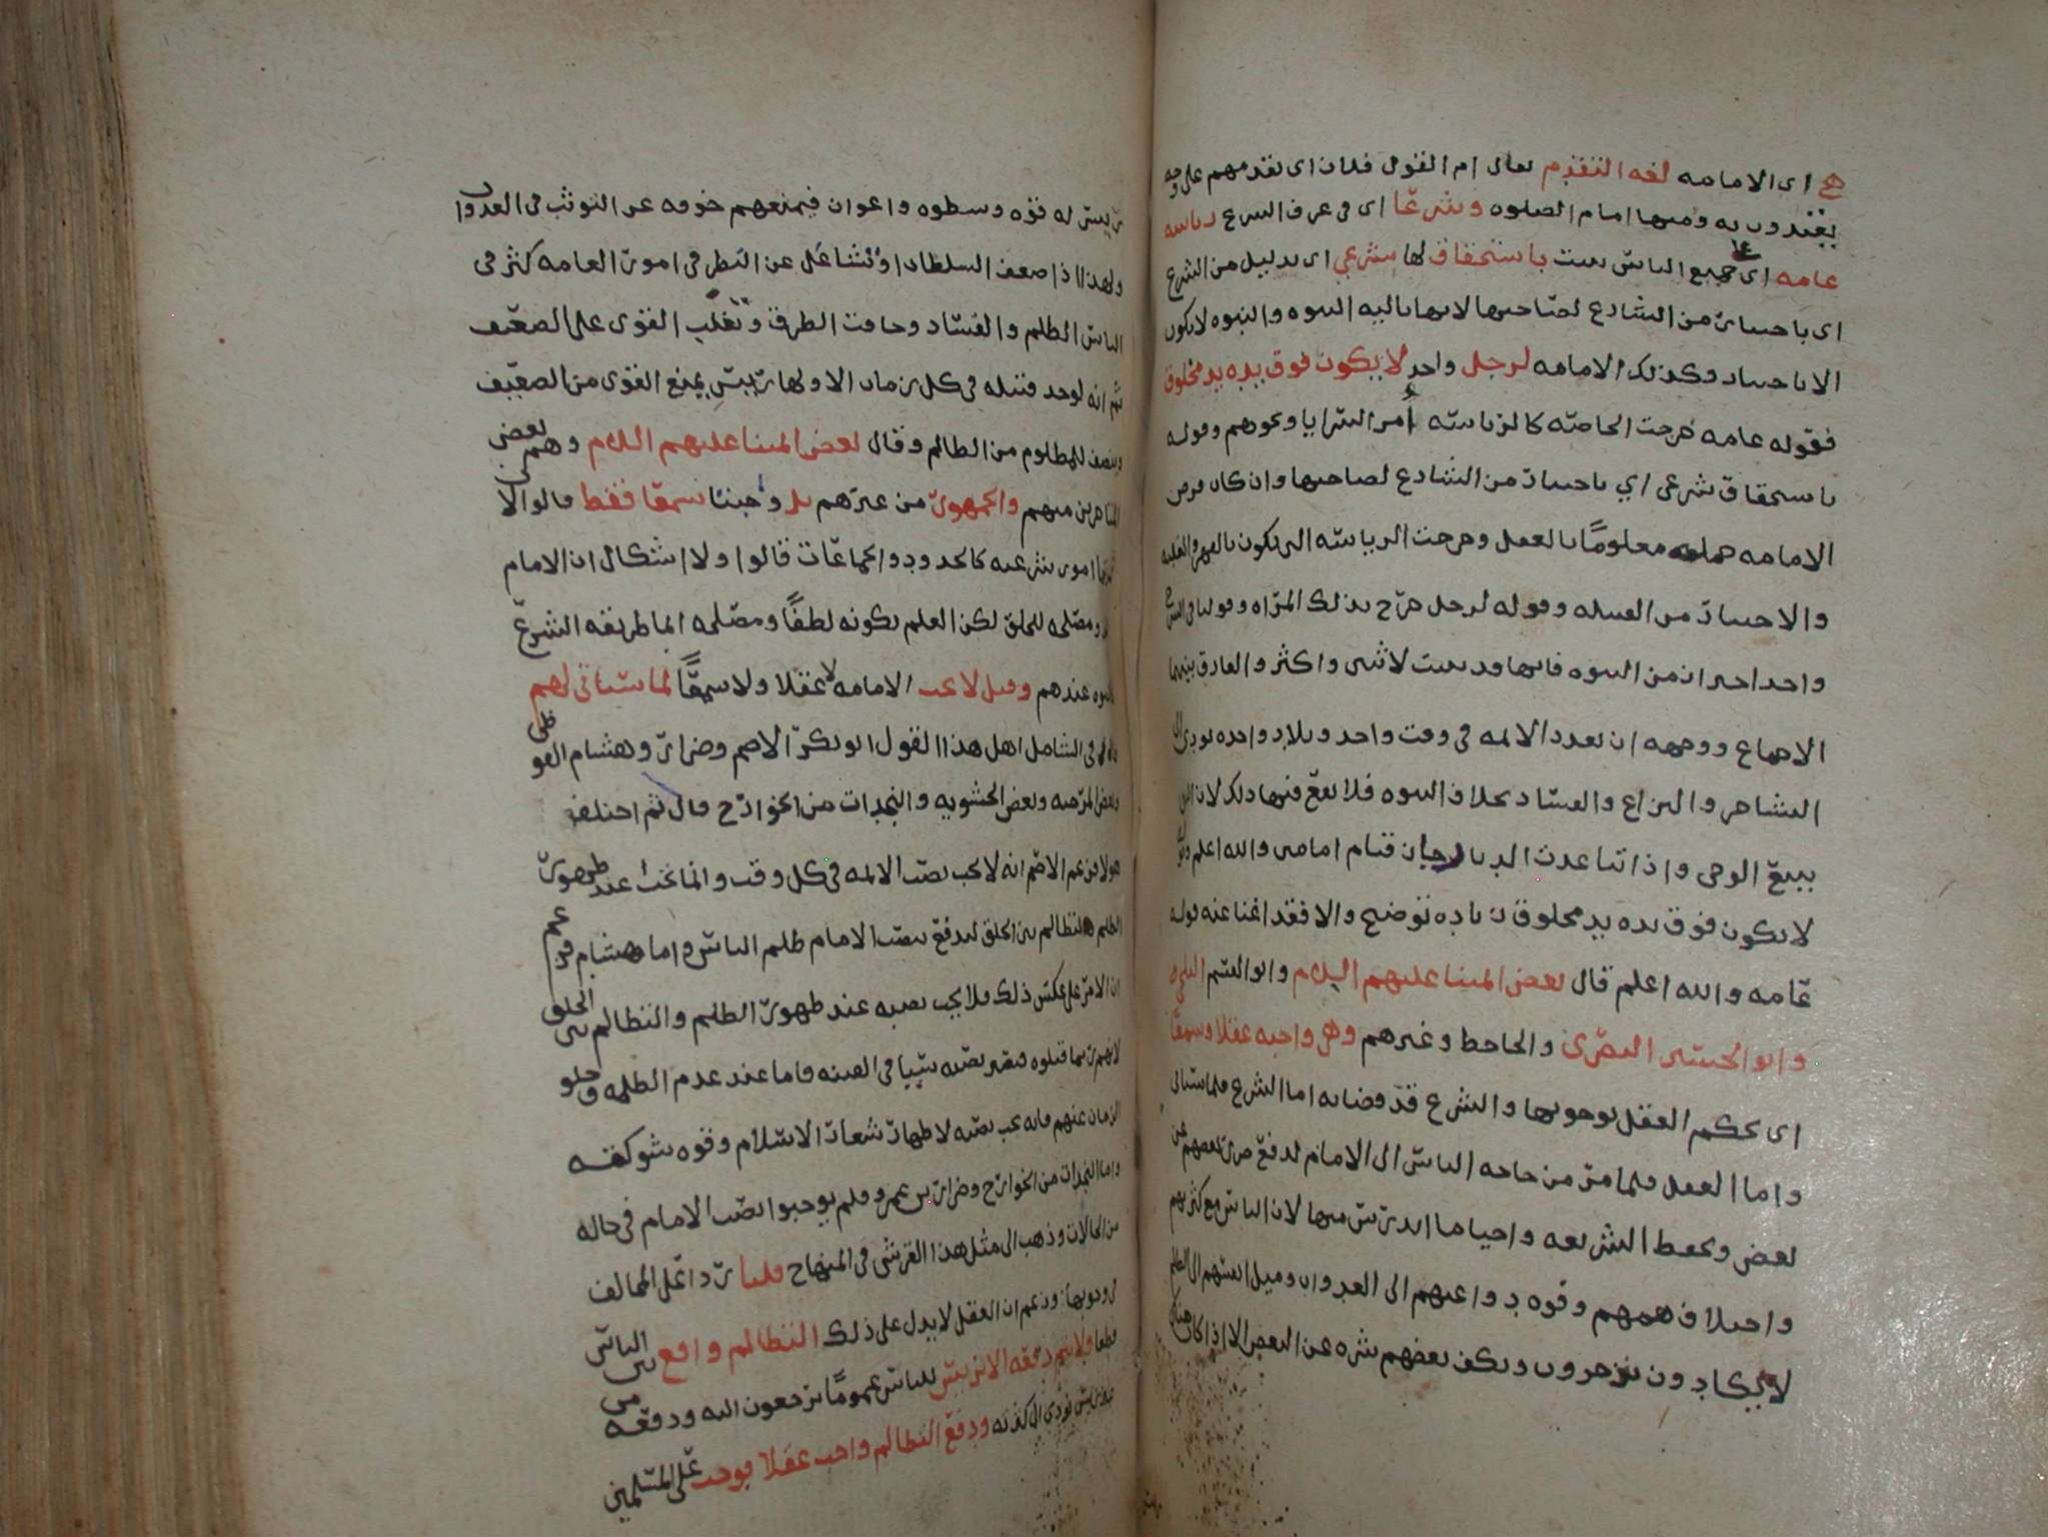 هي اى الامامه لغه التقدم يعال ام القوم فلان اى تقدمهم على وجه
يقتدون به ومنها امام الصلوه وشرعًا اى في عرف الشرع رياسه
عامه اى على جميع الناس ثبت باستحقاق لها شرعي اى بدليل من الشرع
اى باختيار من الشارع لصاحبها لانها تاليه النبوه والنبوه لا تكون
الا باختيار وكذلك الامامه لرجل واحد لا يكون فوق يده يد مخلوق
فقوله عامه خرجت الخاصّه كالرياسه امر السرايا ونحوهم وقوله
باستحقاق شرعي اي باختيار من الشارع لصاحبها وان كان فرض
الامامه جمله معلومًا بالعقل وخرجت الرياسه التي تكون بالقهر والغلبه
والاختيار من القبيله وقوله لرجل خرج بذلك المراه وقولنا في الشرح
واحد احتراز من النبوه فانها قد ثبتت لاثنين واكثر والفارق بينهما
الاجماع ووجهه ان تعدد الائمه في وقت واحد وبلاد واحده يودي الى
التشاجر والنزاع والفساد بخلاف النبوه فلا يقع فيها ذلك لان
يتبع الوحي واذا تباعدت الديار جاز قيام امامين والله اعلم
لا يكون فوق يده يد مخلوق زياده توضيح والا فقد اغنا عنه قوله
عامه والله اعلم قال بعض ائمتنا عليهم السلام وابو القسم البلخي
وابو الحسين البصري والجاحظ وغيرهم وهي واجبه عقلا وسمعًا
اى يحكم العقل بوجوبها والشرع قد قضا به اما الشرع فلما سياتي
واما العقل فلما مر من حاجه الناس الى الامام لدفع ضرر بعضهم عن
بعض وبحفظ الشريعه واحيا ما اندرس منها لان الناس مع كثرتهم
واختلاف هممهم وقوه دواعيهم الى العدوان وميل انفسهم الى الظلم
لا يكادون ينزجرون ويكف بعضهم شره عن البعض الا اذا كان هناك
رئيس له قوه وسطوه واعوان فيمنعهم خوفه عن التوثب في العدوان
ولهذا اذا ضعف السلطان او تشاغل عن النظر في امور العامه كثر في
الناس الظلم والفساد وخافت الطرق وتغلب القوى على الضعيف
ثم انه لوحد قبيله في كل زمان الا ولها رئيس يمنع القوى من الضعيف
وينصف للمظلوم من الظالم وقال بعض ائمتنا عليهم السلام وهم بعض
المتاخرين منهم والجمهور من غيرهم بل وجبت سمعًا فقط قالوا الا
امور شرعيه كالحدود والجماعات قالوا ولا اشكال ان الامام
ومصلحه للخلق لكن العلم بكونه لطفًا ومصلحه انما طريقه الشرع
عندهم وقيل لا تجب الامامه لا عقلا ولا سمعًا لما سياتي لهم
في الشامل اهل هذا القول ابو بكر الاصم وضرار وهشام الفوطي
وبعض المرجيه وبعض الحشويه والنجدات من الخوارج قال ثم اختلف
هولا فزعم الاصم انه لا يجب نصب الائمه في كل وقت وانما يجب عند ظهور
الظلم والتظالم بين الخلق ليدفع بنصب الامام ظلم الناس واما هشام فزعم
ان الامر على عكس ذلك فلا يجب نصبه عند ظهور الظلم والتظالم بين الخلق
لانهم ربما قتلوه فيصير نصبه سببا في الفتنه فاما عند عدم الظلمه وخلو
الزمان عنهم فانه يجب نصبه لاظهار شعار الاسلام وقوه شوكته
واما النجدات من الخوارج وضرار بن عمرو فلم يوجبوا نصب الامام في حاله
من الحالات وذهب الى مثل هذا القرشى في المنهاج قلنا ردا على المخالف
في وجوبها وزعم ان العقل لا يدل على ذلك التظالم واقع بين الناس
قطعا ولا يتم دفعه الا برئيس للناس عمومًا يرجعون اليه ودفعه من
رئيس يؤدي الى كثرته ودفع التظالم واجب عقلا فوجب على المسلمين